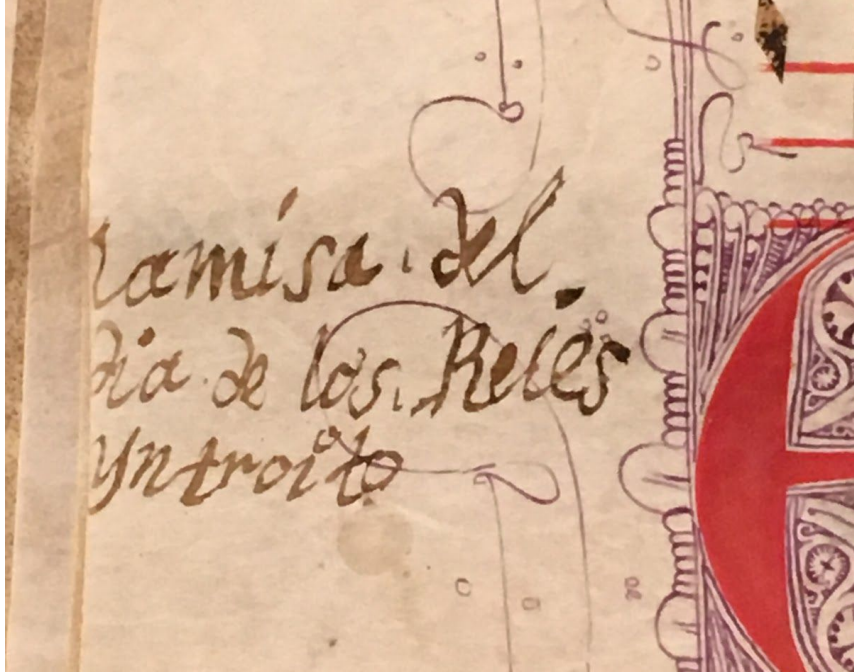 lamisa. del.
dia. de los. Reies
yntroito